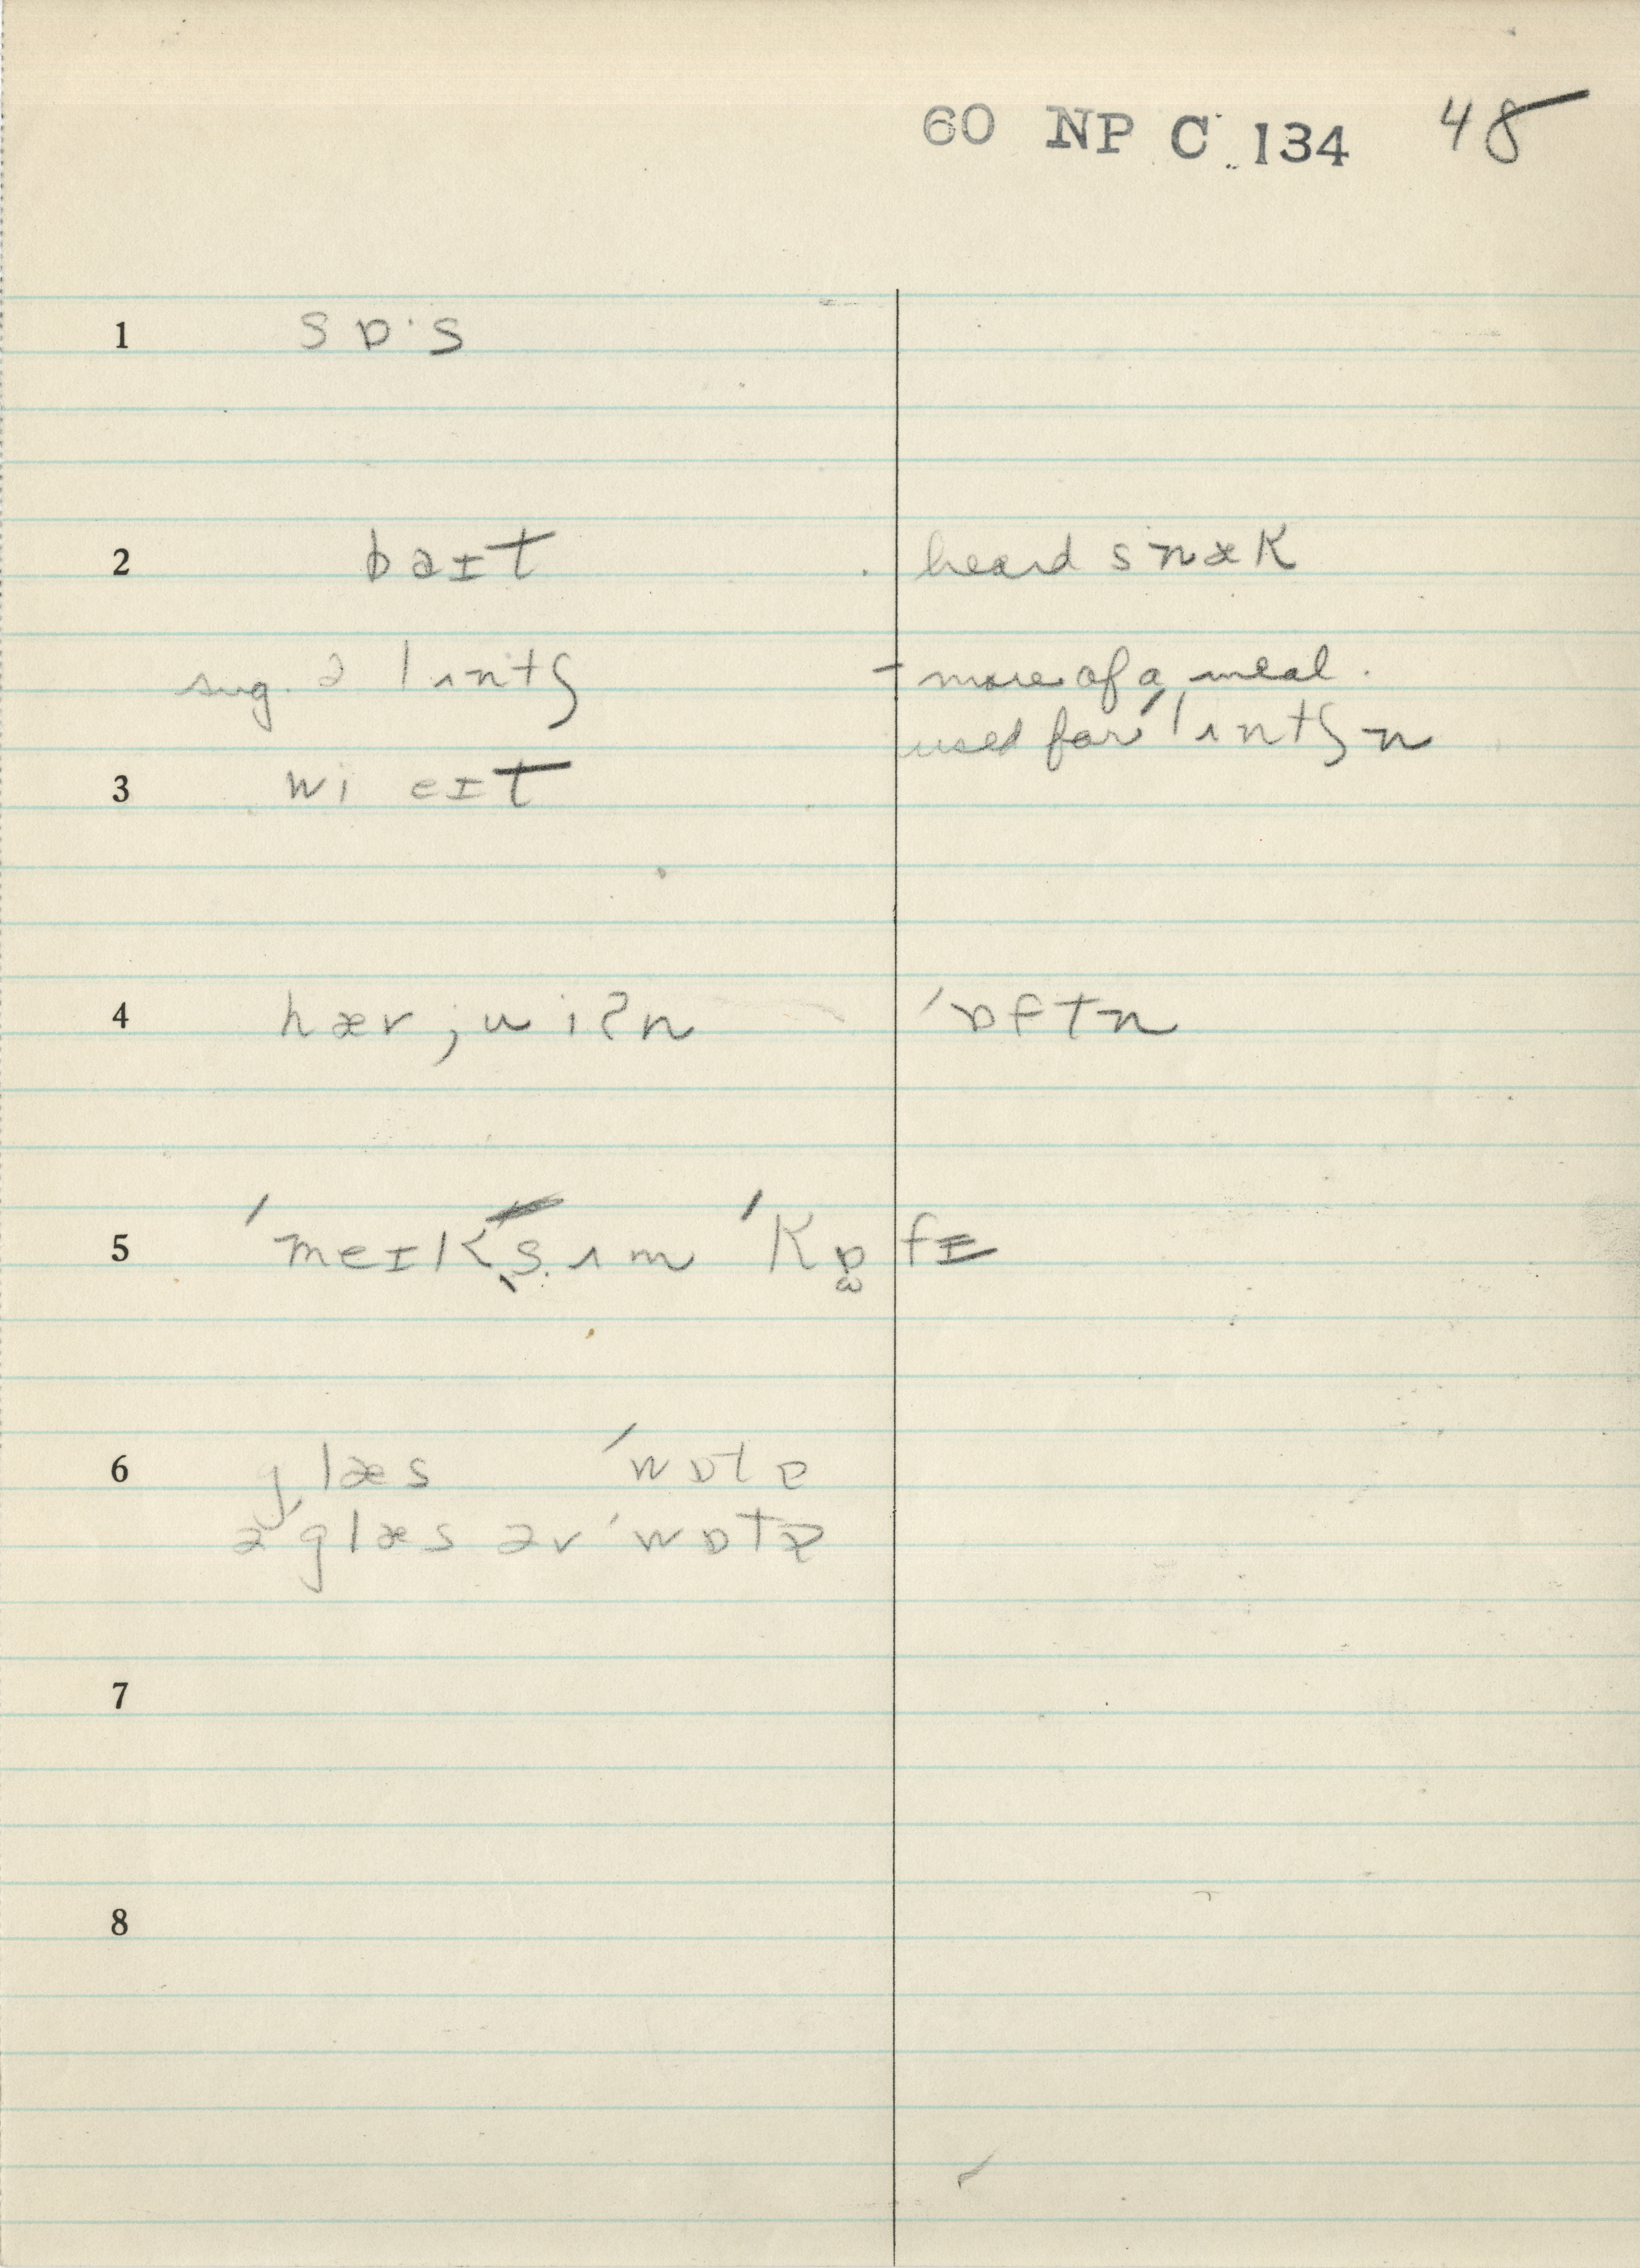 60 NP C 134 48
1 sɒ·s
2 baɪt heard snæk
sug. ə lʌntʃ – more of a meal.
used for ˈlʌntʃn
3 wi eɪt
4 hær ; wiʔn ˈɒftn
5 ˈmeɪk sʌm ˈkɒfɪ
6 glæs ˈwɒtɚ
ə glæs ər ˈwɒtɚ
7
8